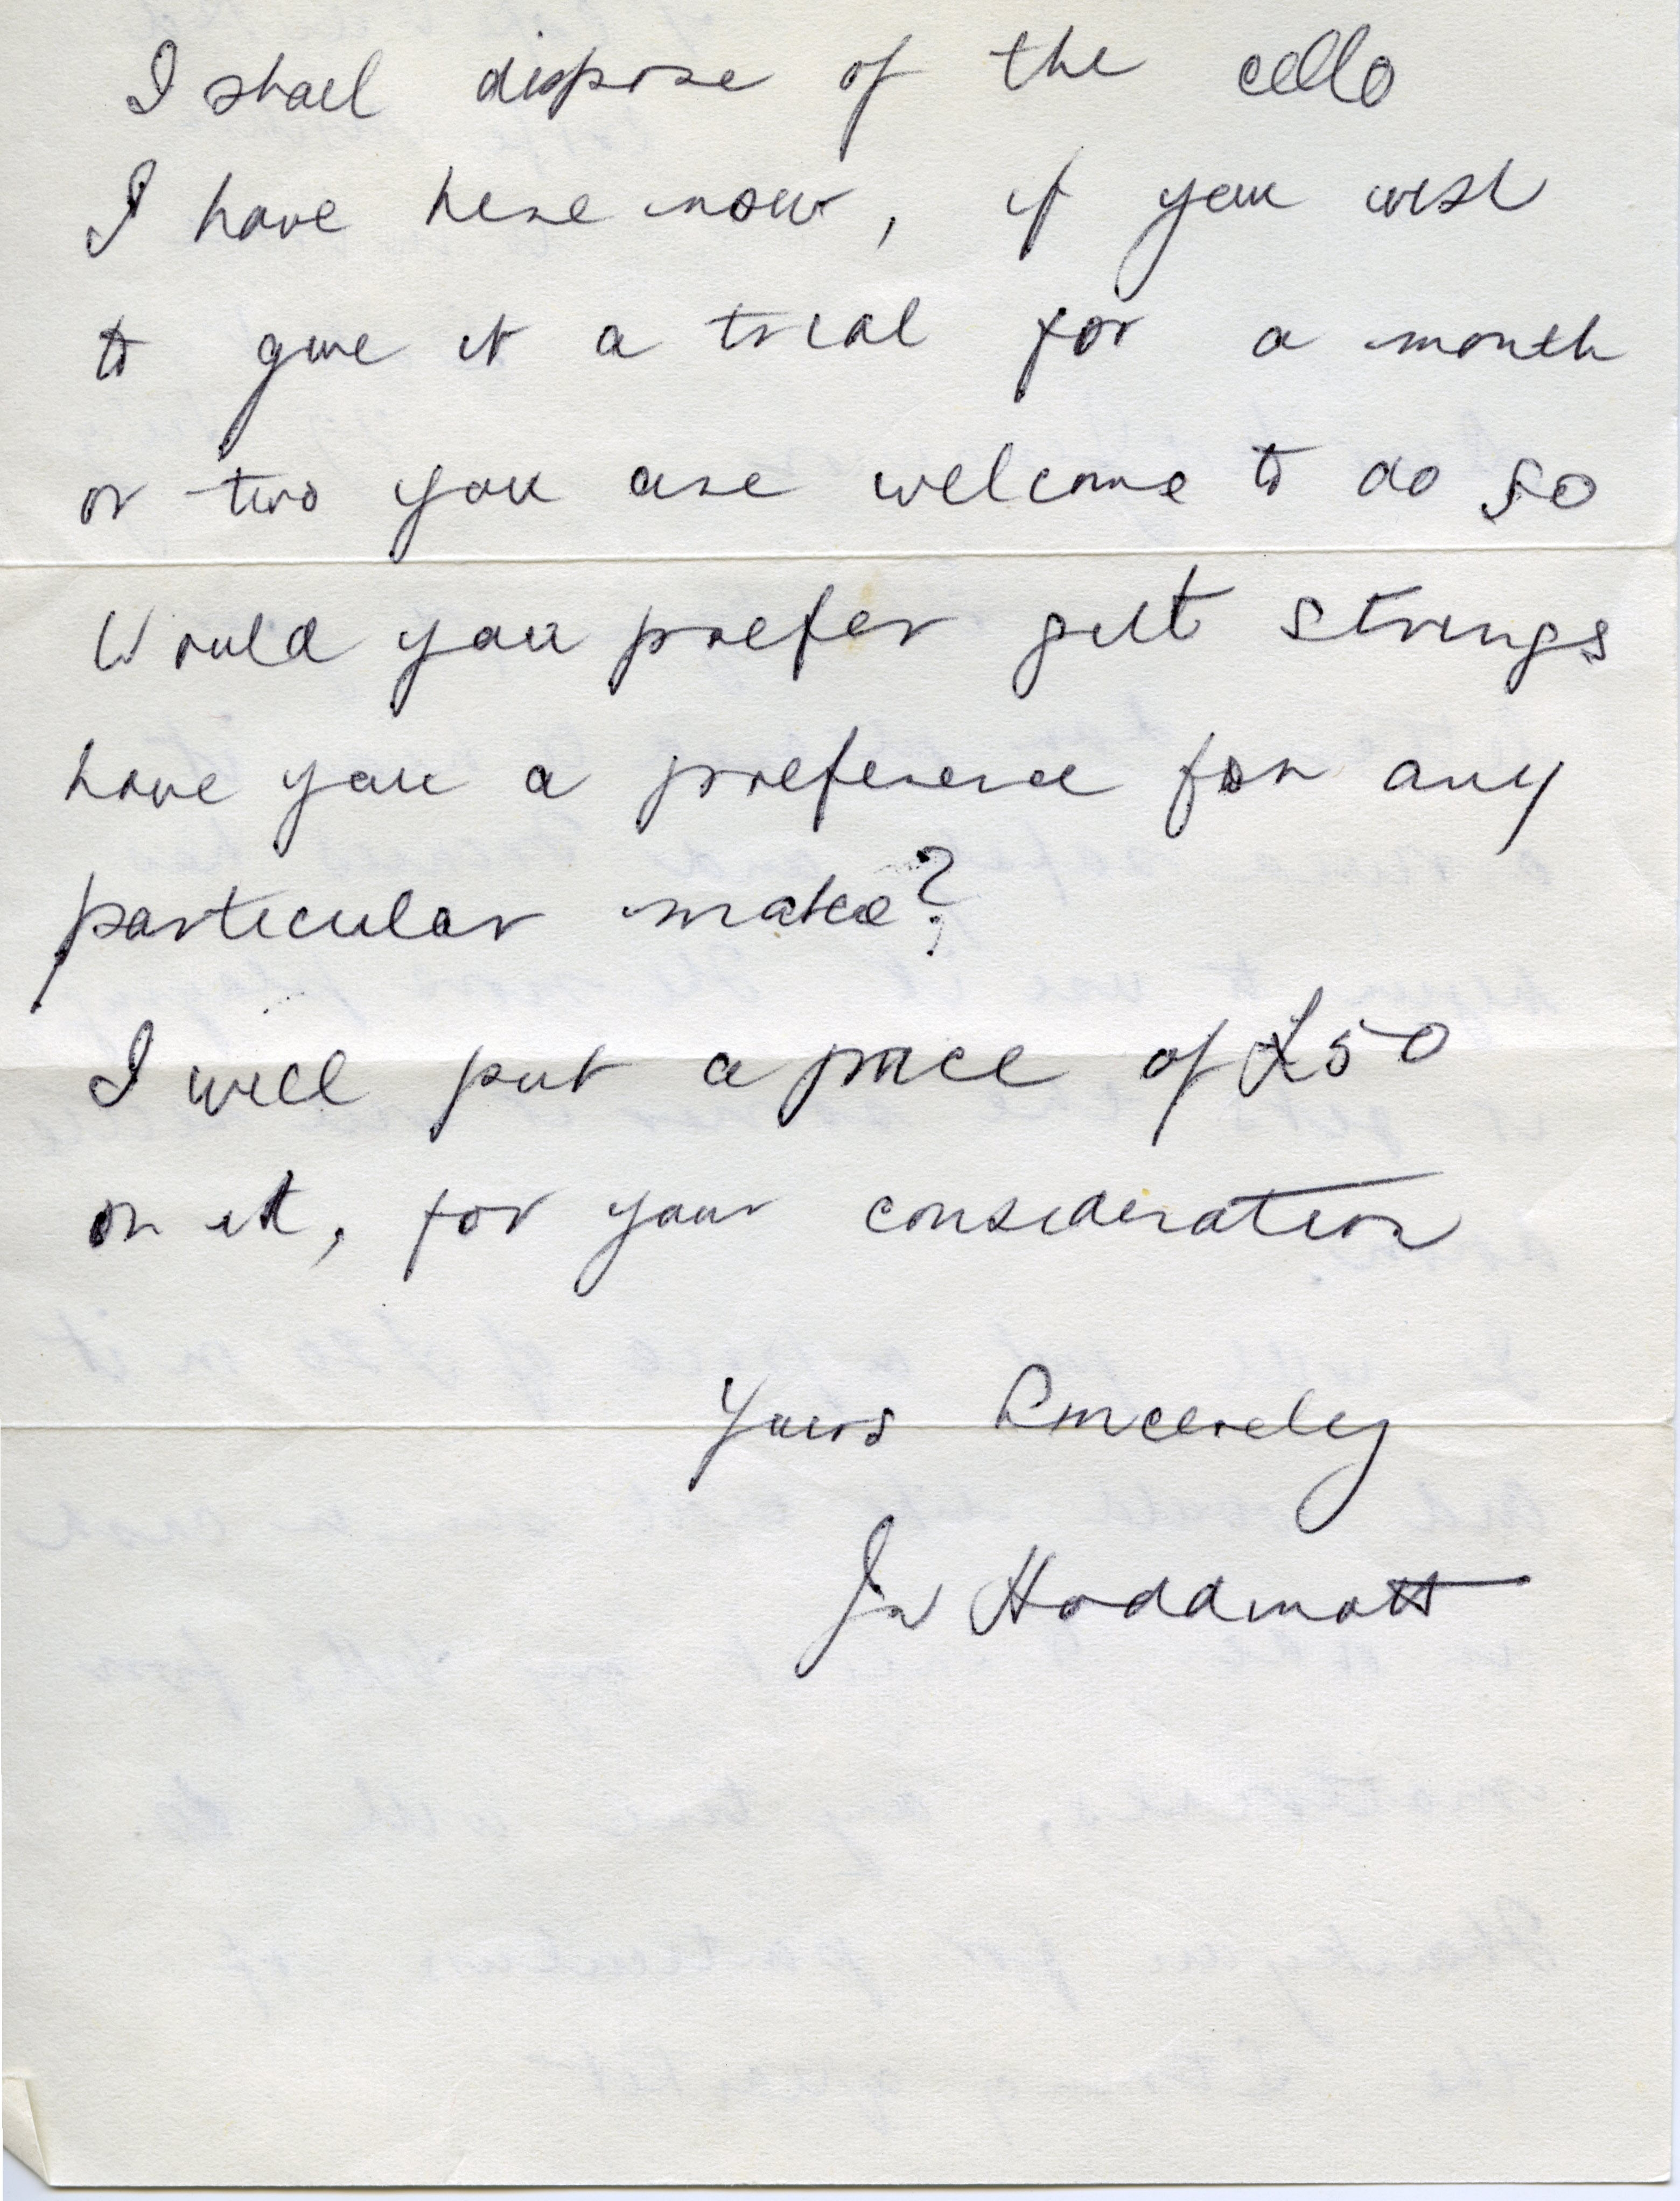 I shall dispose of the cello
I have here now, if you wish
to give it a trial for a month
or two you are welcome to do so
Would you prefer gut strings
have you a preference for any
particular make?
I will put a price of £50
on it, for your consideration
Yours Sincerely
Hoddmott